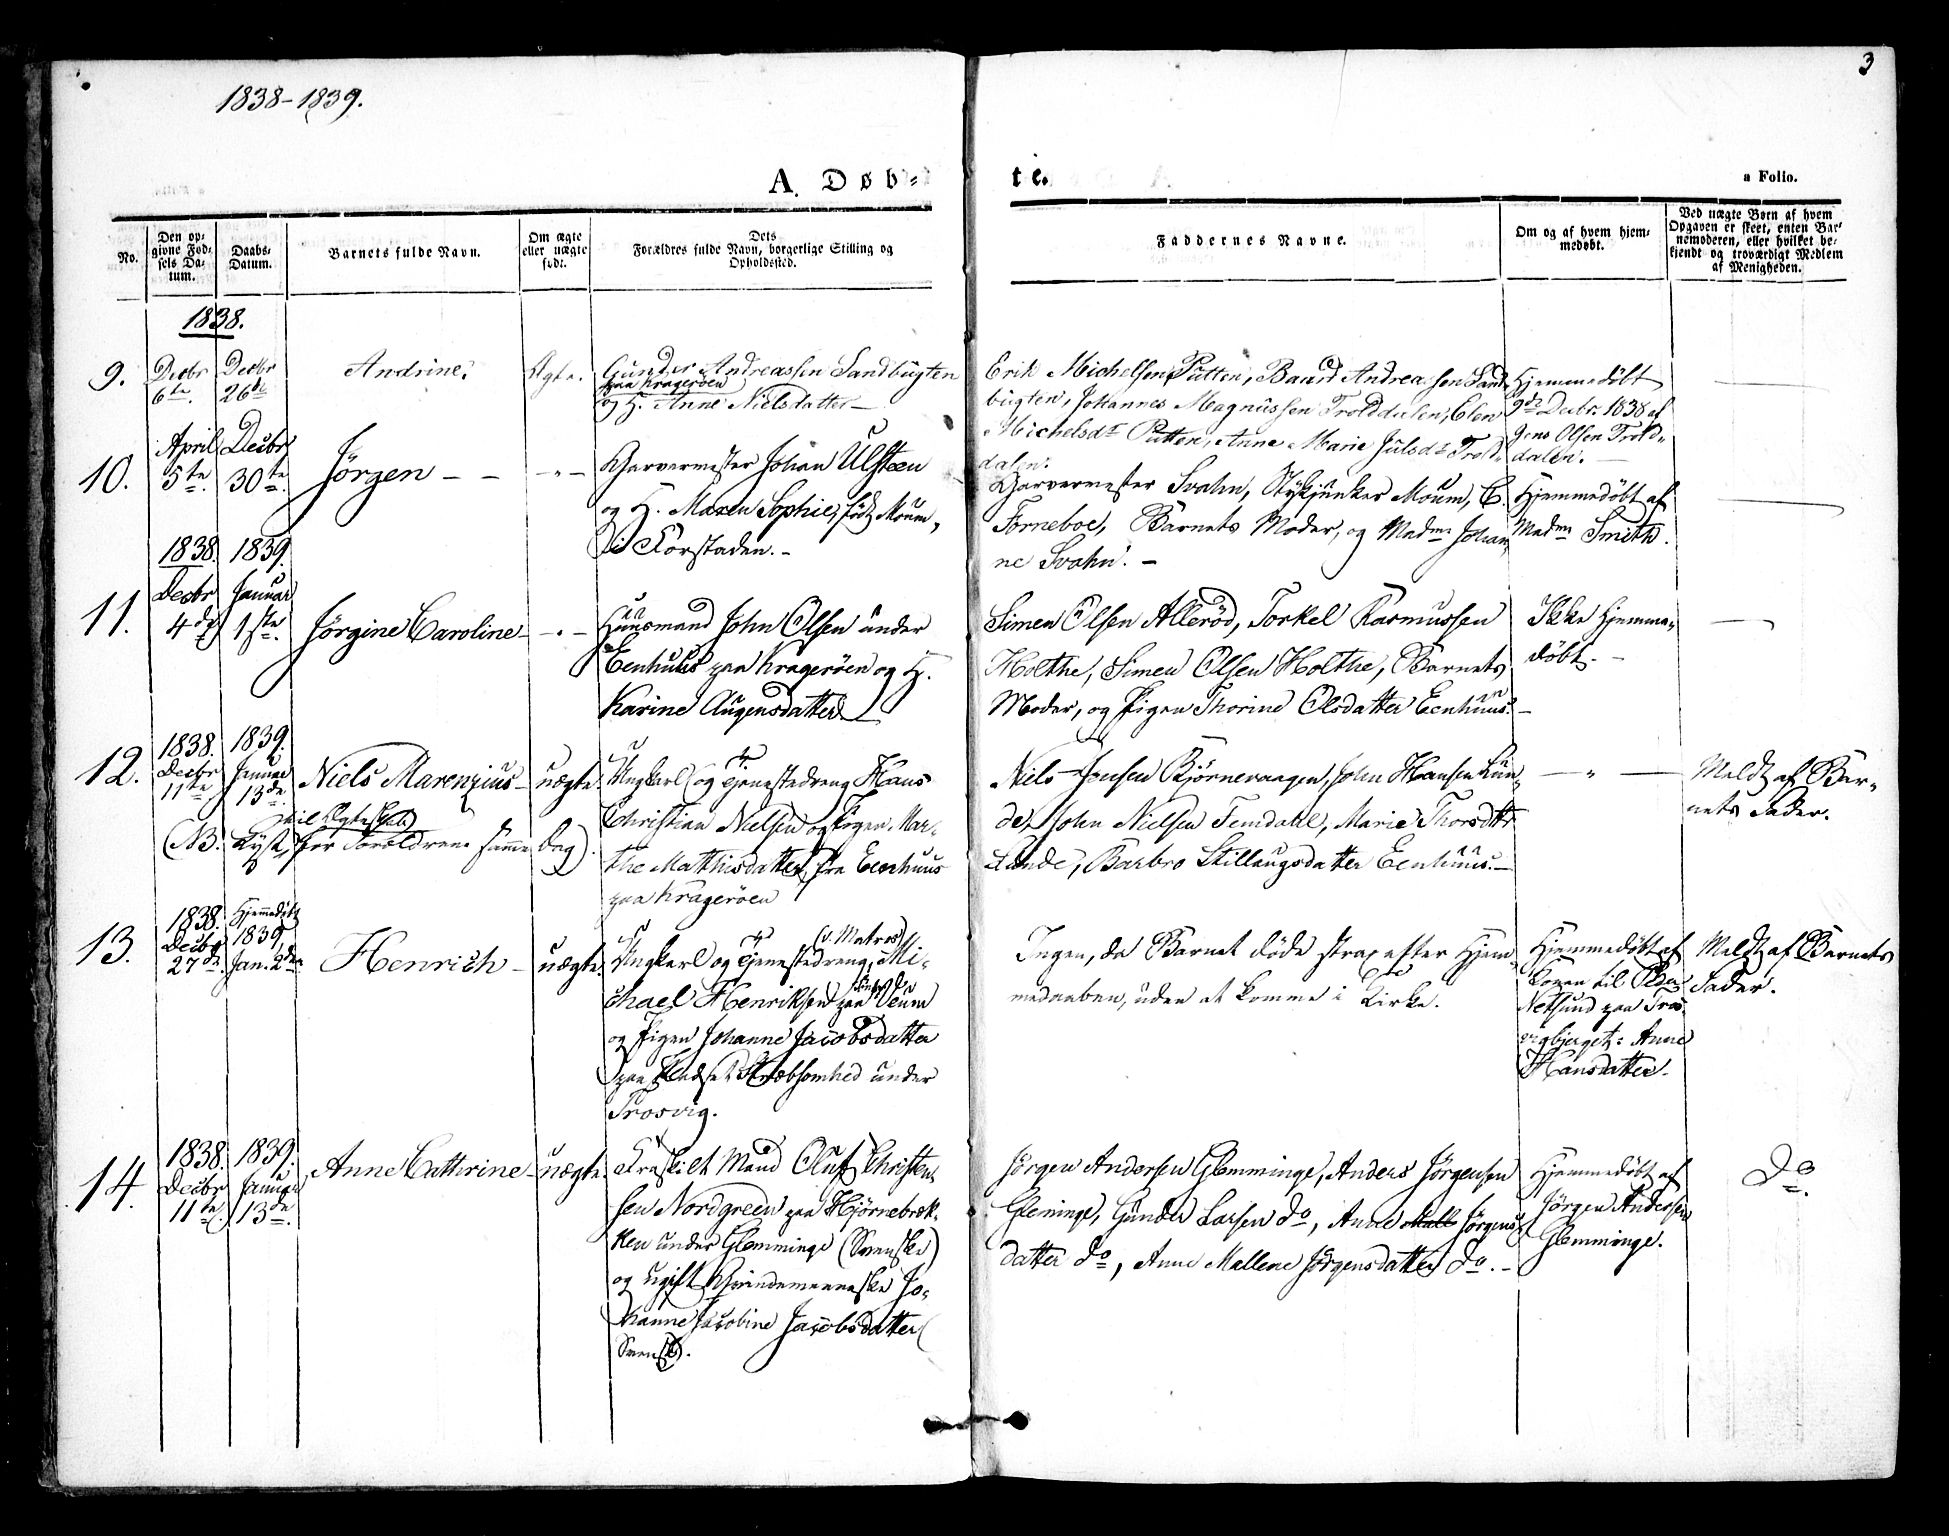 1838-1839.
3
A. Døb=
te.
a Folio.
No.
Den op=
givne Fød=
sels Da=
tum.
Daabs=
Datum.
Barnets fulde Navn.
Om ægte
eller uægte
født.
Dets
Forældres fulde Navn, borgerlige Stilling og
Opholdssted.
Faddernes Navne.
Om og af hvem hjem=
medøbt.
Ved uægte Børn af hvem
Opgaven er skeet, enten Bar=
nemoderen, eller hvilket be=
kjendt og troværdigt Medlem
af Menigheden.
1838.
9.
Decbr
6te.
Decbr
26de
Andrine.
Ægte.
Gunder Andreassen Sandbugten
paa Kragerøen
og H. Anne Nielsdatter —
Erik Michelsen Putten, Baard Andreassen Sand
bugten, Johannes Magnussen Trolddalen, Elen
Michelsdr Putten, Anne Marie Julsdr Trold=
dalen.
Hjemmedøbt
9de Decbr. 1838 af
Jens Olsen Trold=
dalen. —
10.
April
5te.
Decbr
30te.
Jørgen — —
— " —
Garvermester Johan Ulsteen
og H. Maren Sophie, født Moum,
i Forstaden. —
Garvermester Svahn, Stykjunker Moum, C.
Forneboe, Barnets Moder, og Madm Johan
ne Svahn. —
Hjemmedøbt af
Madm Smith.
11.
1838.
Decbr
4de
1839.
Januar
1ste.
Jørgine Caroline —
— " —
Huusmand John Olsen under
Eenhuus paa Kragerøen og H.
Karine Augensdatter —
Simen Olsen Allerød, Torkel Rasmussen
Holthe, Simen Olsen Holthe, Barnets
Moder, og Pigen Thorine Olsdatter Eenhuus. —
Ikke Hjemme=
døbt. —
12.
1838.
Decbr
11te
1839.
Januar
13de.
Niels Marenzius —
uægte.
Ungkarl og Tjenestedreng Hans
Christian Nielsen og Pigen Mar=
the Mathisdatter, fra Eenhuus
paa Kragerøen
til Ægteskab
(NB. Lyst for Forældrene samme Dag)
Niels Jensen Bjørnevaagen, John Hansen Lun=
de, John Nielsen Femdahl, Marie Thorsdtr
Lunde, Barbro Stillaugsdatter Eenhuus. —
— " —
Meldt af Bar=
nets Fader.
13.
1838.
Decbr
27de.
Hjemmedøbt
1839,
Jan. 2den
Henrich —
uægte.
(v. Matros)
Ungkarl og Tjenestedreng, Mi=
chael Henriksen paa Veum
og Pigen Johanne Jacobsdatter
paa Pladset Stræbsomhed under
Trosvig.
Ingen, da Barnet døde strax efter Hjem=
medaaben, uden at komme i Kirke.
Hjemmedøbt af
Konen til Peder
Netsund paa Tros=
vigbjerget: Anne
Hansdatter.
Meldt af Barnets
Fader.
14.
1838.
Decbr
11te.
1839.
Januar
13de.
Anne Cathrine —
uægte.
Fraskilt Mand Oluf Christen=
sen Nordgreen paa Hjørnebrek=
ken under Glemminge (Svenske)
og ugift Qvindemenneske Jo=
hanne Jacobine Jacobsdatter
Svensk).
Jørgen Andersen Glemminge, Anders Jørgensen
Glemminge, Gunder Larsen do, Anne Mall Jørgens
datter do, Anne Mallene Jørgensdatter do. —
Hjemmedøbt af
Jørgen Andersen
Glemminge.
Do.